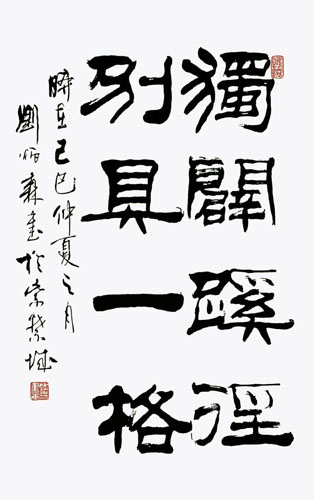 獨闢蹊徑
別具一格
時在己巳仲夏之月
劉炳森書於紫禁城